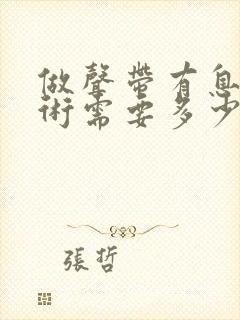 做聲帶有息
術需要多少
張哲